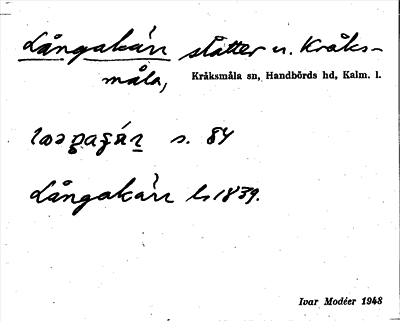 Långakärr slåtter u. Kråks-
måla, Kråksmåla sn, Handbörds hd, Kalm. l.
s. 84
Långakärr ls 1839.
Ivar Modéer 1948